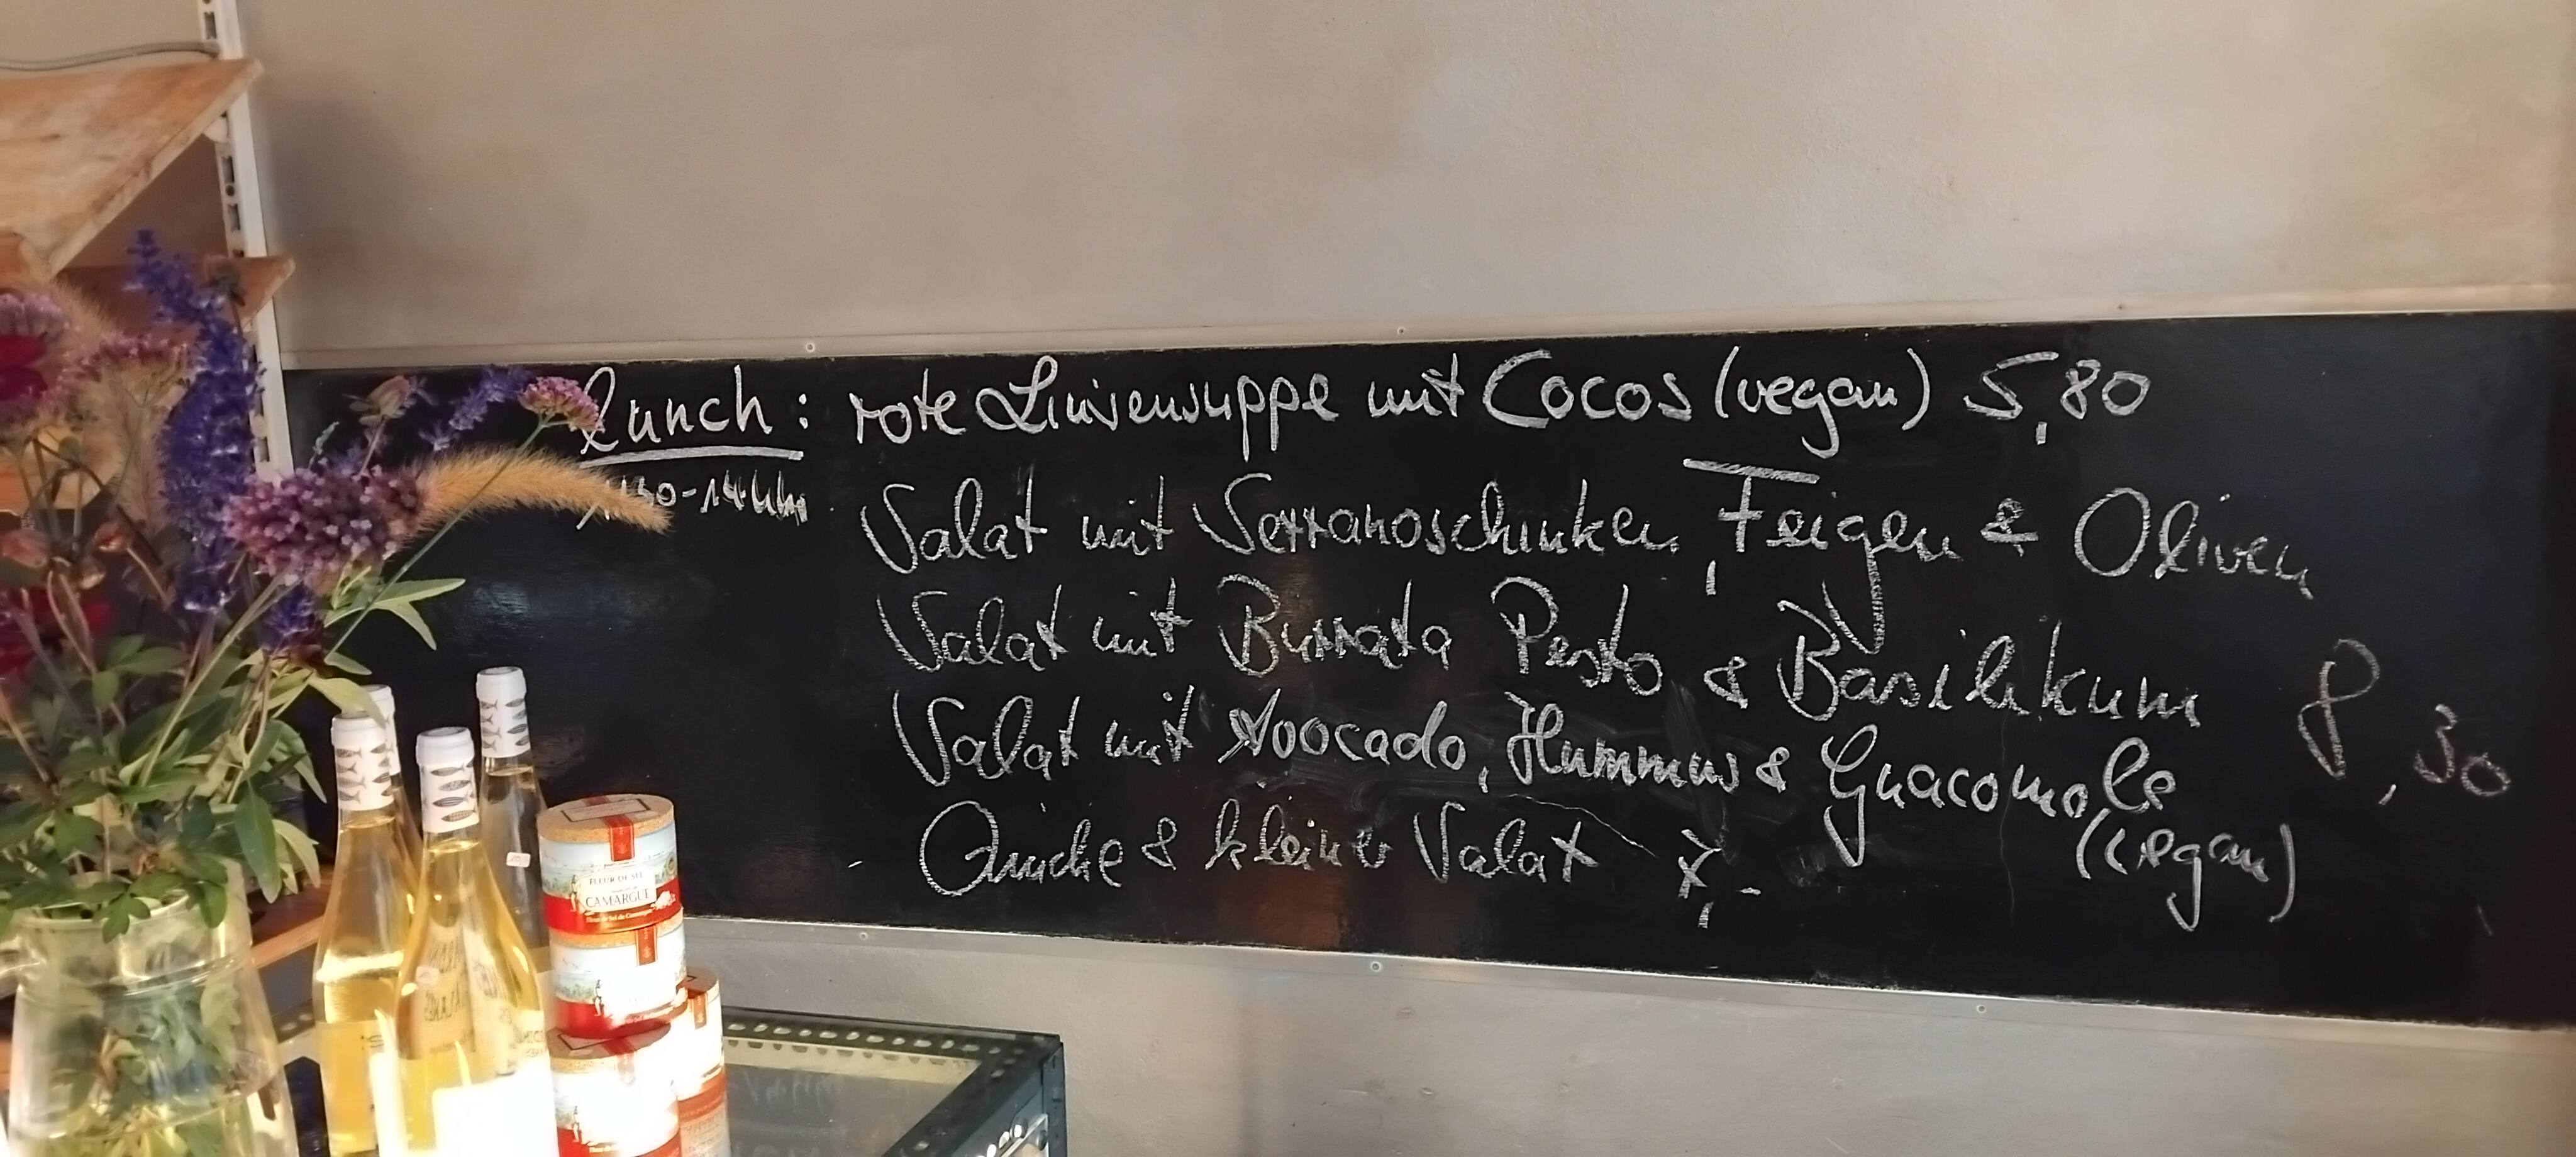 Lunch: rote Linsensuppe mit Cocos (vegan) 5,80
30-14 Uhr
Salat mit Serranoschinken, Feigen & Oliven
Salat mit Burrata Pesto & Basilikum
8,30
Salat mit Avocado, Hummus & Guacomole
(vegan)
Quiche & kleiner Salat 7,-
FLEUR DE SEL
CAMARGUE
Fleur de Sel de Camargue